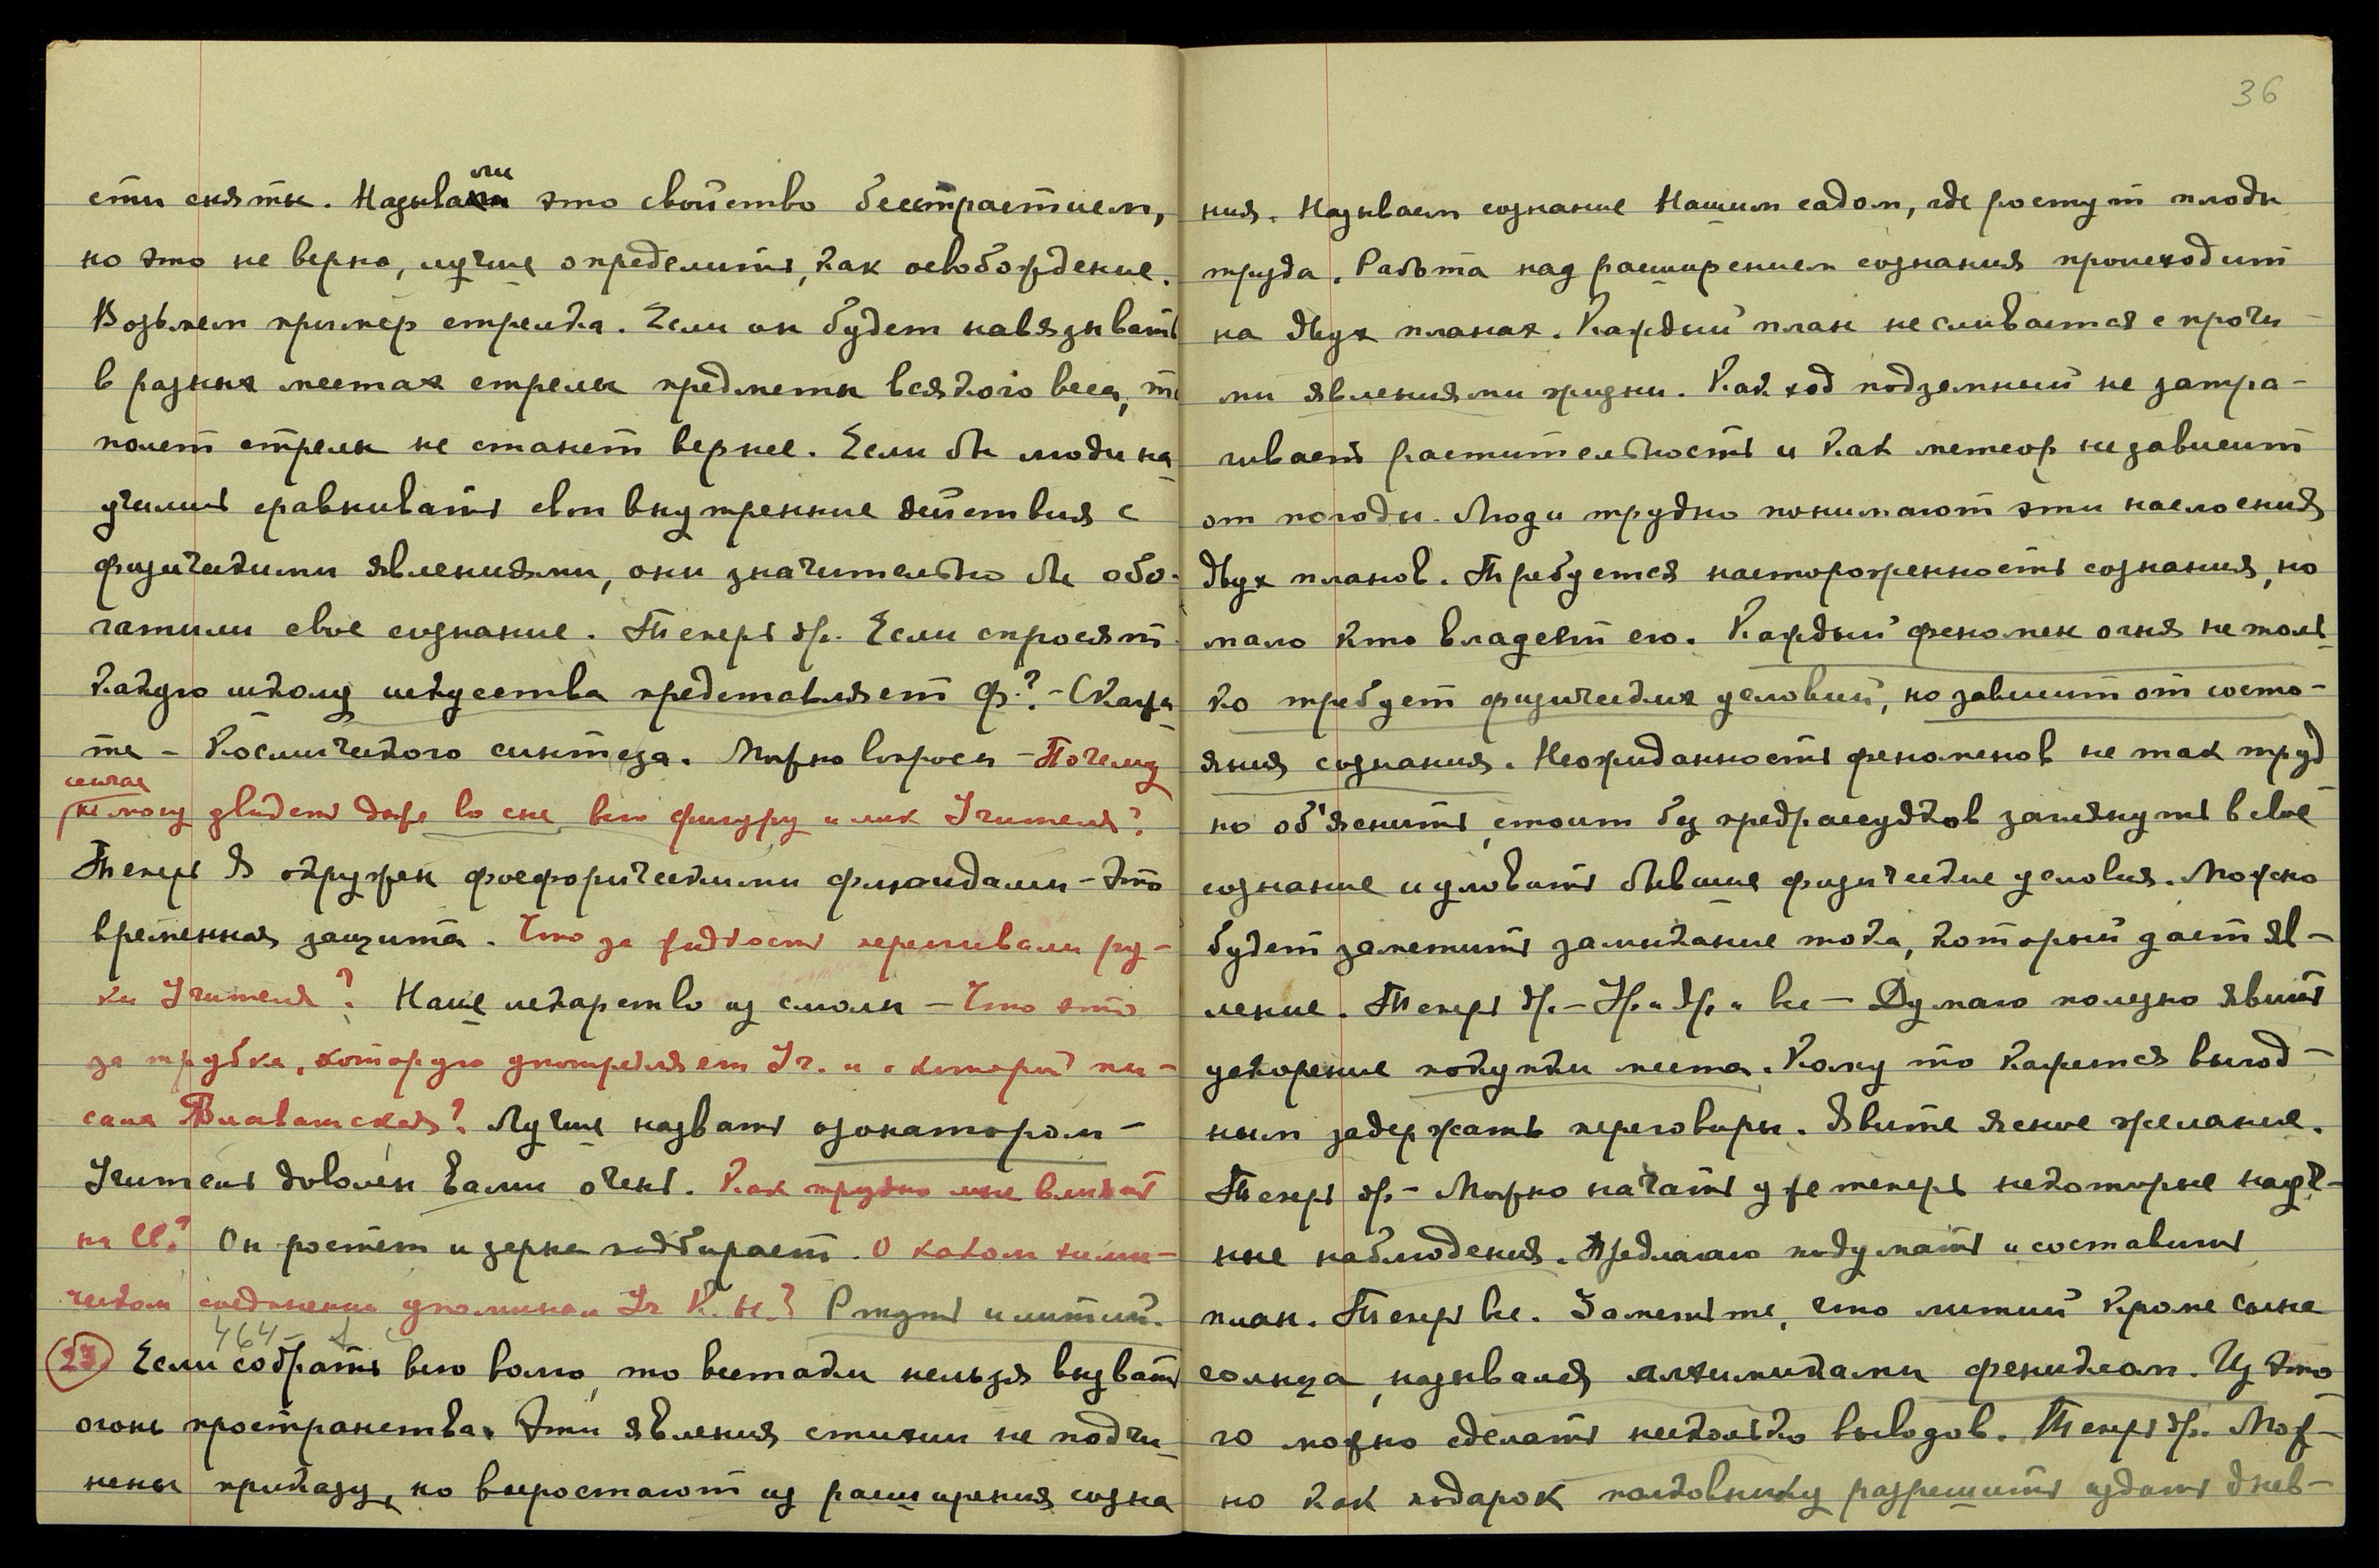 сти сняты. Называли это свойство бесстрастием,
но это не верно, лучше определить, как освобождение.
Возьмем пример стрелка. Если он будет навязывать
в разных местах стрелы предметы всякого веса, то
полет стрелы не станет вернее. Если бы люди на
учились сравнивать свои внутренние действия с
физическими явлениями, они значительно бы обо-
гатили свое сознание. Теперь др. Если спросят
какую школу искусства представляет Ф.? - Скажи
те - Космического синтеза. Можно вопросы - Почему
сейчас
не могу увидеть даже во сне всю фигуру и лик Учителя?
Теперь Я окружен фосфорическими флюидами - это
временная защита. Что за жидкость переливали ру-
ки Учителя? Наше лекарство из смолы - Что это
за трубка, которую употребляет Уч. и о которой пи-
сала Блаватская? Лучше назвать озонатором -
Учитель доволен Вами очень. Как трудно мне влиять
на Св.? Он ростет и зерна подбирает. О каком хими-
ческом соединении упоминал Уч К.Н.? Ртуть и литий.
464
23 Если собрать всю волю, то всетаки нельзя вызвать
огонь пространства. Эти явления стихии не подчи-
нены приказу, но выростают из расширения созна
36
ния. Называем сознание Нашим садом, где ростут плоды
труда. Работа над расширением сознания происходит
на двух планах. Каждый план не сливается с прочи-
ми явлениями жизни. Как ход подземный не затра-
гивает растительность и как метеор не зависит
от погоды. Люди трудно понимают эти наслоения
двух планов. Требуется настороженность сознания, но
мало кто владеет ею. Каждый феномен огня не толь
ко требует физических условий, но зависит от состо-
яния сознания. Неожиданность феноменов не так труд
но об'яснить, стоит без предрассудков заглянуть в свое
сознание и уловить бывшие физические условия. Можно
будет заметить замыкание тока, который дает яв-
ление. Теперь др. - Ур. и Др. и все - Думаю полезно явить
ускорение покупки места. Кому то кажется выгод-
ным задержать переговоры. Явите ясное желание.
Теперь др - Можно начать уже теперь некоторые науч-
ные наблюдения. Предлагаю подумать и составить
план. Теперь все. Заметьте, что литий кроме сына
солнца, назывался алхимиками фениксом. Из это
го можно сделать несколько выводов. Теперь др. Мож-
но как подарок полковнику разрешить издать днев-